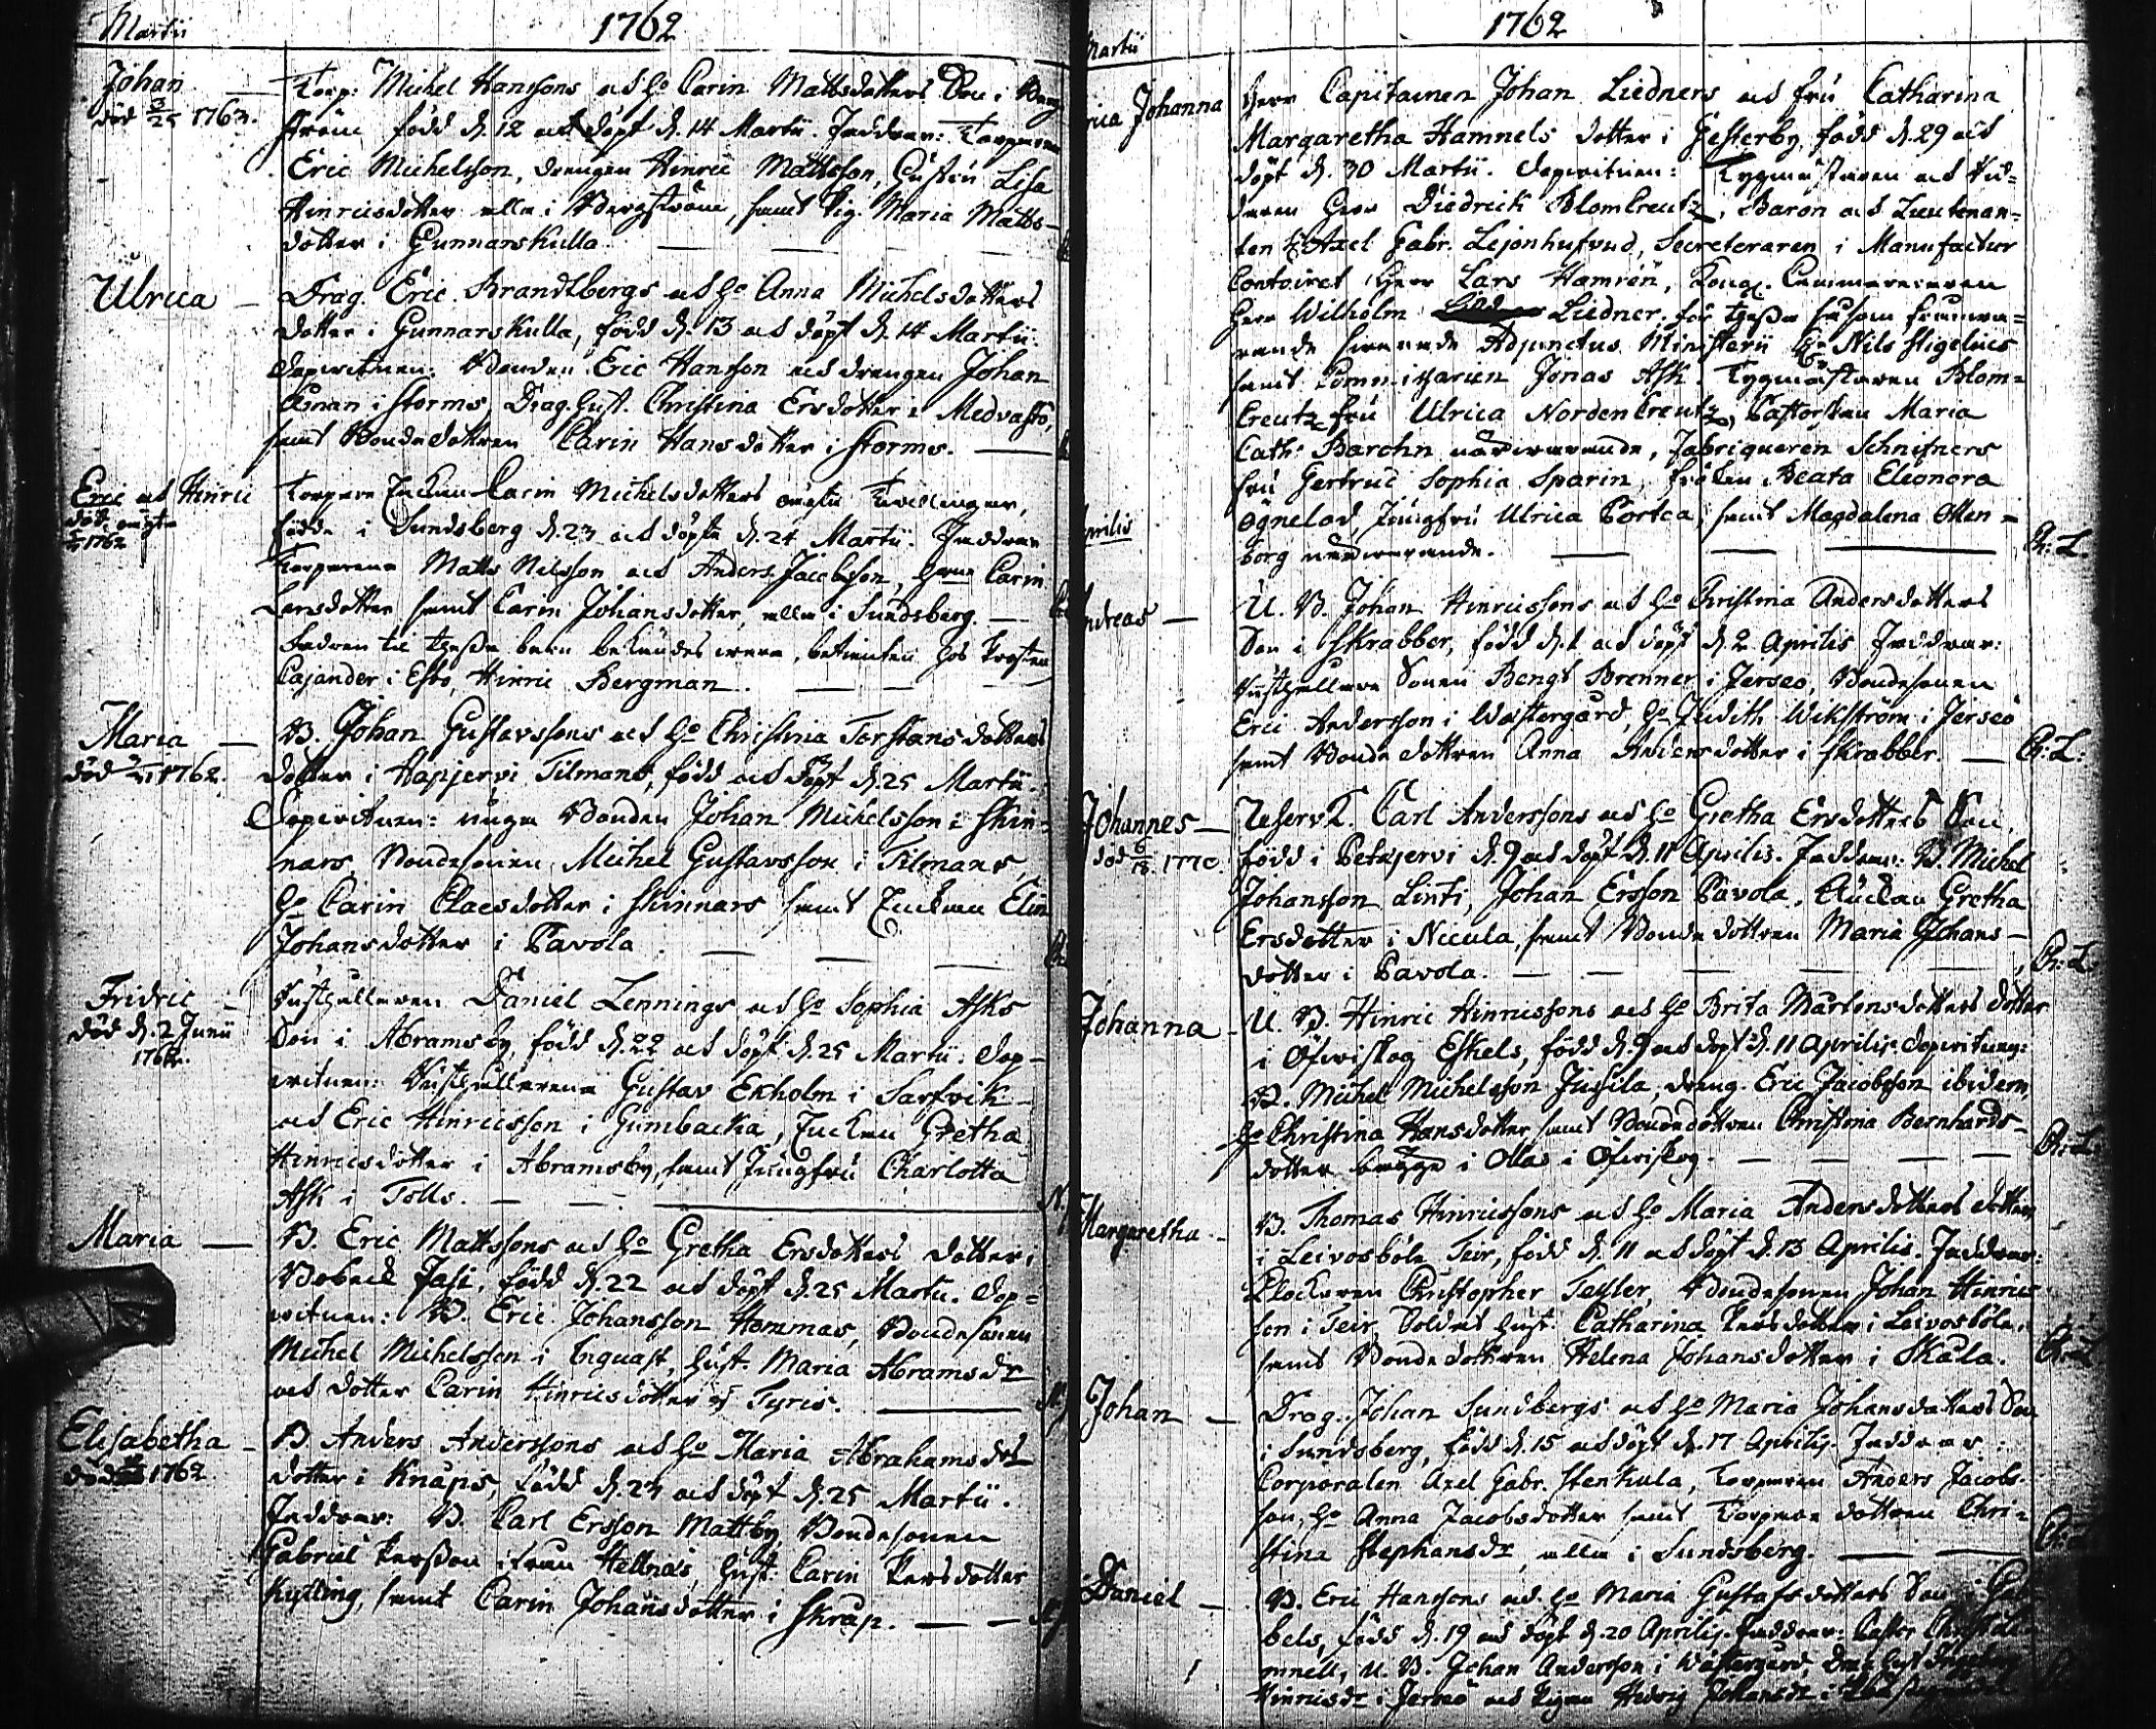 Martii
1762
Johan
död 3/25 1763.
Torp: Michel Hanssons och h:o Carin Mattsdotters Son i Berg
ström född d. 12 och döpt d. 14 Martii. Faddrar: Torparen
Eric Michelsson, drengen Hinric Mattsson, Hustru Lisa
Hinricsdotter alla i Bergström, samt Pig. Maria Matts-
dotter i Gunnarskulla
Ulrica
Drag. Eric Brandtbergs och h:o Anna Michelsdotters
dotter i Gunnarskulla, född d. 13 och döpt d. 14 Martii.
Dopvitnen: Bonden Eric Hansson och drengen Johan
i Storms, Drag. Hust. Christina Ersdotter i Medvasto,
samt Bondedottren Carin Hansdotter i Storms.
Eric och Hinric
död
1762
Torpare Enkan Carin Michelsdotters oägta Tvillingar,
födde i Sundsberg d. 23 och döpte d. 24 Martii. Faddrar
Torparena Matts Nilsson och Anders Jacobsson, Carin
Larsdotter samt Carin Johansdotter, alla i Sundsberg.
Fadren til thessa barn bekändes vara, betienten hos Prosten
Cajander i Esbo, Hinric Bergman.
Maria
död 1762.
B. Johan Gustavssons och h:o Christina Torstansdotters
dotter i Hapjervi Tilmans, född och döpt d. 25 Martii.
Dopvitnen: unga Bonden Johan Michelsson i Skin-
nars, Bondesonen Michel Gustavsson i Tilmans,
h:o Carin Claesdotter i Skinnars samt Enkan Elin
Johansdotter i Pavola
Fridric
död d. 2 Junii
1762.
Rusthållaren Daniel Lennings och h:o Sophia Asks
Son i Abramsby, född d. 22 och döpt d. 25 Martii. Dop-
vitnen: Rusthållarena Gustav Ekholm i Sarfvik
och Eric Hinricsson i Gumbacka, Enkan Gretha
Hinricsdotter i Abramsby, samt Jungfru Charlotta
Ask i Tolls.
Maria
B. Eric Mattssons och h:o Gretha Ersdotters dotter i
Bobeck Jasi, född d. 22 och döpt d. 25 Martii. Dop=
vitnen: B. Eric Johansson Hommas, Bondesonen
Michel Michelsson i Ingvast, Hust. Maria Abramsdr
och dotter Carin Hinricsdotter Tyris.
Elisabetha
död 1762.
B. Anders Anderssons och h:o Maria Abrahamsdrs
dotter i Knapis, född d. 23 och döpt d. 25 Martii.
Faddrar: B. Carl Ersson Mattby, Bondesonen
Gabriel Persson ifrån Hellnäs, Hust: Carin Persdotter
Kylling, samt Carin Johansdotter i Skrap.
1762
Martii
rica Johanna
Herr Capitainen Johan Liedners och fru Catharina
Margaretha Hamnels dotter i Gesterby, född d. 29 och
döpt d. 30 Martii. Dopvitnen: Tygmästaren och Rid=
daren Herr Diedrick Blomcreutz, Baron och Lieutenan=
ten h:r Axel Gabr. Lejonhufvud, Secreteraren i Manufactur
Contoiret Herr Lars Hamrén, Kongl. Cammereraren
Herr Wilhelm Liedner, för thessa såsom frånva=
rande svarade Adjunctus Ministerii h:r Nils Stigelius
samt Commissarien Jonas Ask. Tygmästaren Blom=
creutz fru Ulrica Nordencreutz, Pastorskan Maria
Cath: Barchn närvarande, Fabriqueren Schnifners
fru Gertrud Sophia Sparin, fröken Beata Eleonora
Ögnelod, Jungfru Ulrica Portca, samt Magdalena Otten=
borg närvarande.
Ch: L.
prilis
ndreas
U. B. Johan Hinricssons och h:o Christina Andersdotters
Son i Skrabber, född d. 1 och döpt d. 2 Aprilis. Faddrar:
Rusthållare Sonen Bengt Brenner i Jerseö, Bondesonen
Eric Andersson i Wästergård, h:o Judith Wikström i Jerseö
samt Bondedottren Anna Andersdotter i Skrabber.
Ch: L:
Johannes
död 6/13. 1770.
Reserv K. Carl Anderssons och h:o Gretha Ersdotters Son,
född i Petäjervi d. 9 och döpt d. 11 Aprilis. Faddrar: B. Michel
Johansson Linti, Johan Ersson Pavola, Enckan Gretha
Ersdotter i Niccula, samt Bondedottren Maria Johans-
dotter i Pavola.
Ch: L:
Johanna
U. B. Hinric Hinricssons och h:o Brita Mårtensdotters dotter
i Öfvitskog Eskels, född d. 9 och döpt d. 11 Aprilis. Dopvitnen:
B. Michel Michelsson Jussila, dreng. Eric Jacobsson ibidem,
h:o Christina Hansdotter samt Bondedottren Christina Bernhards-
dotter begge i Ollas i Öfvitskog.
Ch: L:
Margaretha
B. Thomas Hinricssons och h:o Maria Andersdotters dotter
i Leivosböle Teir, född d. 11 och döpt d. 13 Aprilis. Faddrar:
Clockaren Christopher Tesler, Bondesonen Johan Hinrics
son i Teir, Soldat Hust. Catharina Persdotter i Leivosböle,
samt Bondedottren Helena Johansdotter i Skala.
Ch: L
Johan
Drag. Johan Sundbergs och h:o Maria Johansdotters Son
i Sundsberg, född d. 15 och döpt d. 17 Aprilis. Faddrar:
Corporalen Axel Gabr. Stenkula, Torparen Anders Jacobs-
son, h:o Anna Jacobsdotter samt Torpare dottren Chri=
stina Stephansdr, alla i Sundsberg.
Daniel
B. Eric Hanssons och h:o Maria Gustafsdotters Son i
bels, född d. 19 och döpt d. 20 Aprilis. Faddrar: Pastor
mnell, U. B. Johan Andersson i Wästergård,
Hinricsdr i Jerseö och Pigan Hedvig Johansdr i